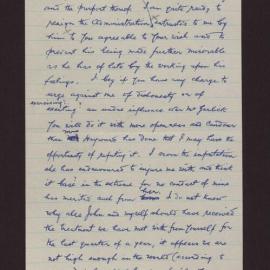 and the purport thereof. I am quite ready to
resign the administration entrusted to me by
him to you agreeable to your wish and to
prevent his being made further miserable
as he has of late by the working upon his
feelings. I beg if you have any charge to
urge against me of dishonesty or of
exercising
an undue influence over Mr Garlick
You will do it with more openness and candour
than Mrs Haywood has done that I may have the
opportunity of refuting it. I scorn the imputation
she has endeavoured to injure me with and think
it base in the extreme for no conduct of mine
has merited such from her. I do not know
why also John and myself should have received
the treatment we have met with from yourself for
the last quarter of a year, it appears we are
not high enough in the world (according to